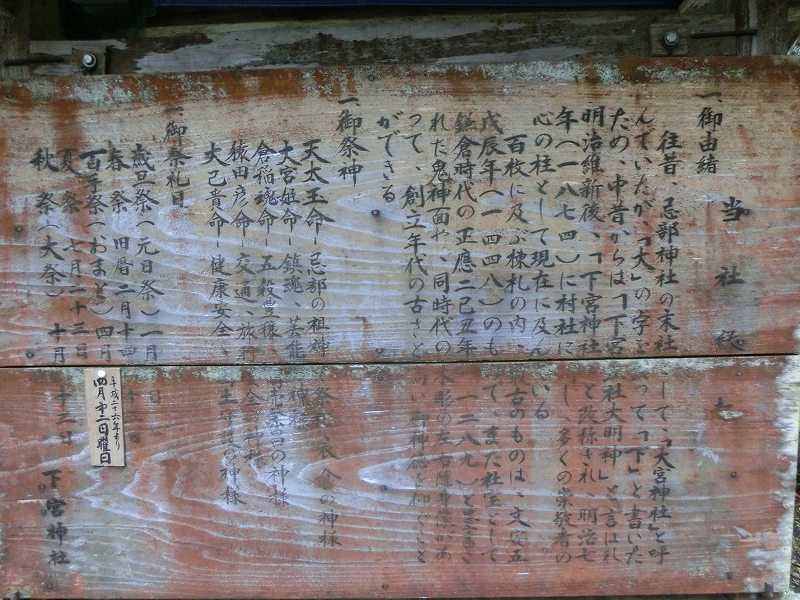 当社総
一、御由緒
往昔、忌部神社の末社として、「大宮神社」と呼
んでいたが、「大」の字を って「下」と書いた
ため、中昔からは「下宮 社大明神」と言はれ
明治維新後、「下宮神社 と改称され、明治七
年(一八七四)に村社に し多くの崇敬者の
心の柱として現在に及んでいる
百枚に及ぶ棟札の内、 古のものは、文安五
戊辰年(一四四八)のも で、また社宝として
鎌倉時代の正應二己丑年 八九)と
れた鬼神面や、同時代の 木彫の左右随身像があ
って、創立年代の古さと い御神徳を仰ぐこと
ができる
一御祭神
天太玉命ー忌部の祖神 衣 の神様
大宮姫命ー鎮魂、芸能 神様
倉稲魂命ー五穀豊穣、 の神様
猿田彦命ー交通、旅行 安全 神様
大己貴命ー健康安全、 守護の神様
一御祭礼日
歳旦祭(元日祭)一月 日
春祭 旧暦二月十四
百手祭(おまと)四月
平成二十六年より
四月第二日曜日
夏祭 七月一十三日
秋祭(大祭)十月 十三日
下宮神社